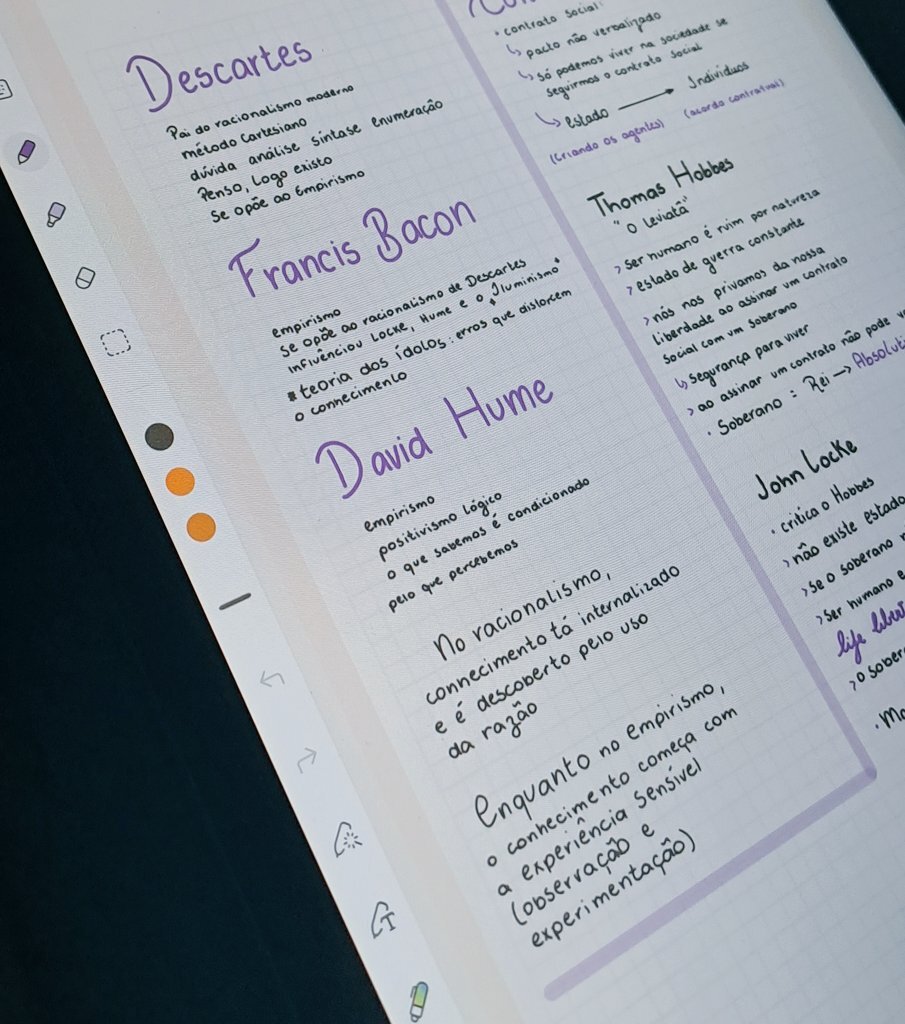 Descartes
Pai do racionalismo moderno
método Cartesiano
dúvida análise síntase enumeração
Penso, Logo existo
Se opõe ao Empirismo
Francis Bacon
empirismo
Se opõe ao racionalismo de Descartes
Influênciou Locke, Hume e o "Iluminismo"
* teoria dos ídolos: erros que distorcem
o conhecimento
David Hume
empirismo
positivismo Lógico
o que sabemos é condicionado
pelo que percebemos
No racionalismo,
connecimento tá internalizado
e é descoberto pelo uso
da razão
Enquanto no empirismo,
o conhecimento começa com
a experiência Sensível
(observação e
experimentação)
• contrato Social:
↳ pacto não verbalizado
↳ só podemos viver na sociedade se
seguirmos o contrato social
↳ Estado → Indivíduos
(Criando os agentes) (acordo contratual)
Thomas Hobbes
"O Leviatã"
> Ser humano é ruim por natureza
> estado de guerra constante
> nós nos privamos da nossa
liberdade ao assinar um contrato
Social com um Soberano
↳ segurança para viver
> ao assinar um contrato não pode
• Soberano = Rei →
John Locke
• critica o Hobbes
> não existe estado
> Se o soberano
> Ser humano e
life
> o